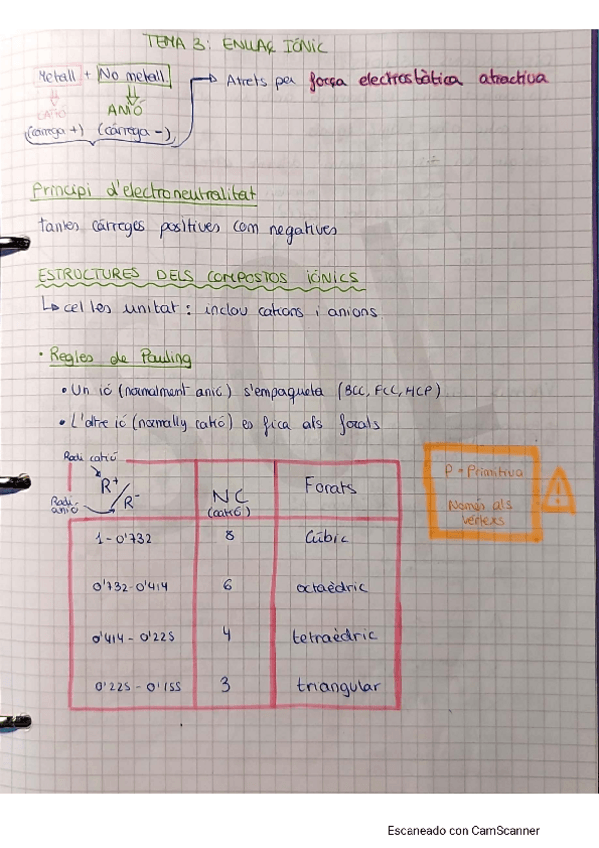 TEMA 3: ENLLAÇ IÒNIC
Metall + No metall → Atrets per força electrostàtica atractiva
CATIÓ ANIÓ
(càrrega +) (càrrega -)
Principi d'electroneutralitat
tantes càrregues positives com negatives
ESTRUCTURES DELS COMPOSTOS IÒNICS
↳ cel·les unitat: inclou cations i anions
• Regles de Pauling
• Un ió (normalment anió) s'empaqueta (BCC, FCC, HCP)
• L'altre ió (normally catió) es fica als forats
Radi catió
R+/R-
Radi anió
NC
(catió)
Forats
1-0'732 8 Cúbic
0'732-0'414 6 octaèdric
0'414-0'225 4 tetraèdric
0'225-0'155 3 triangular
P = Primitiva
Només als
vèrtexs
Escaneado con CamScanner